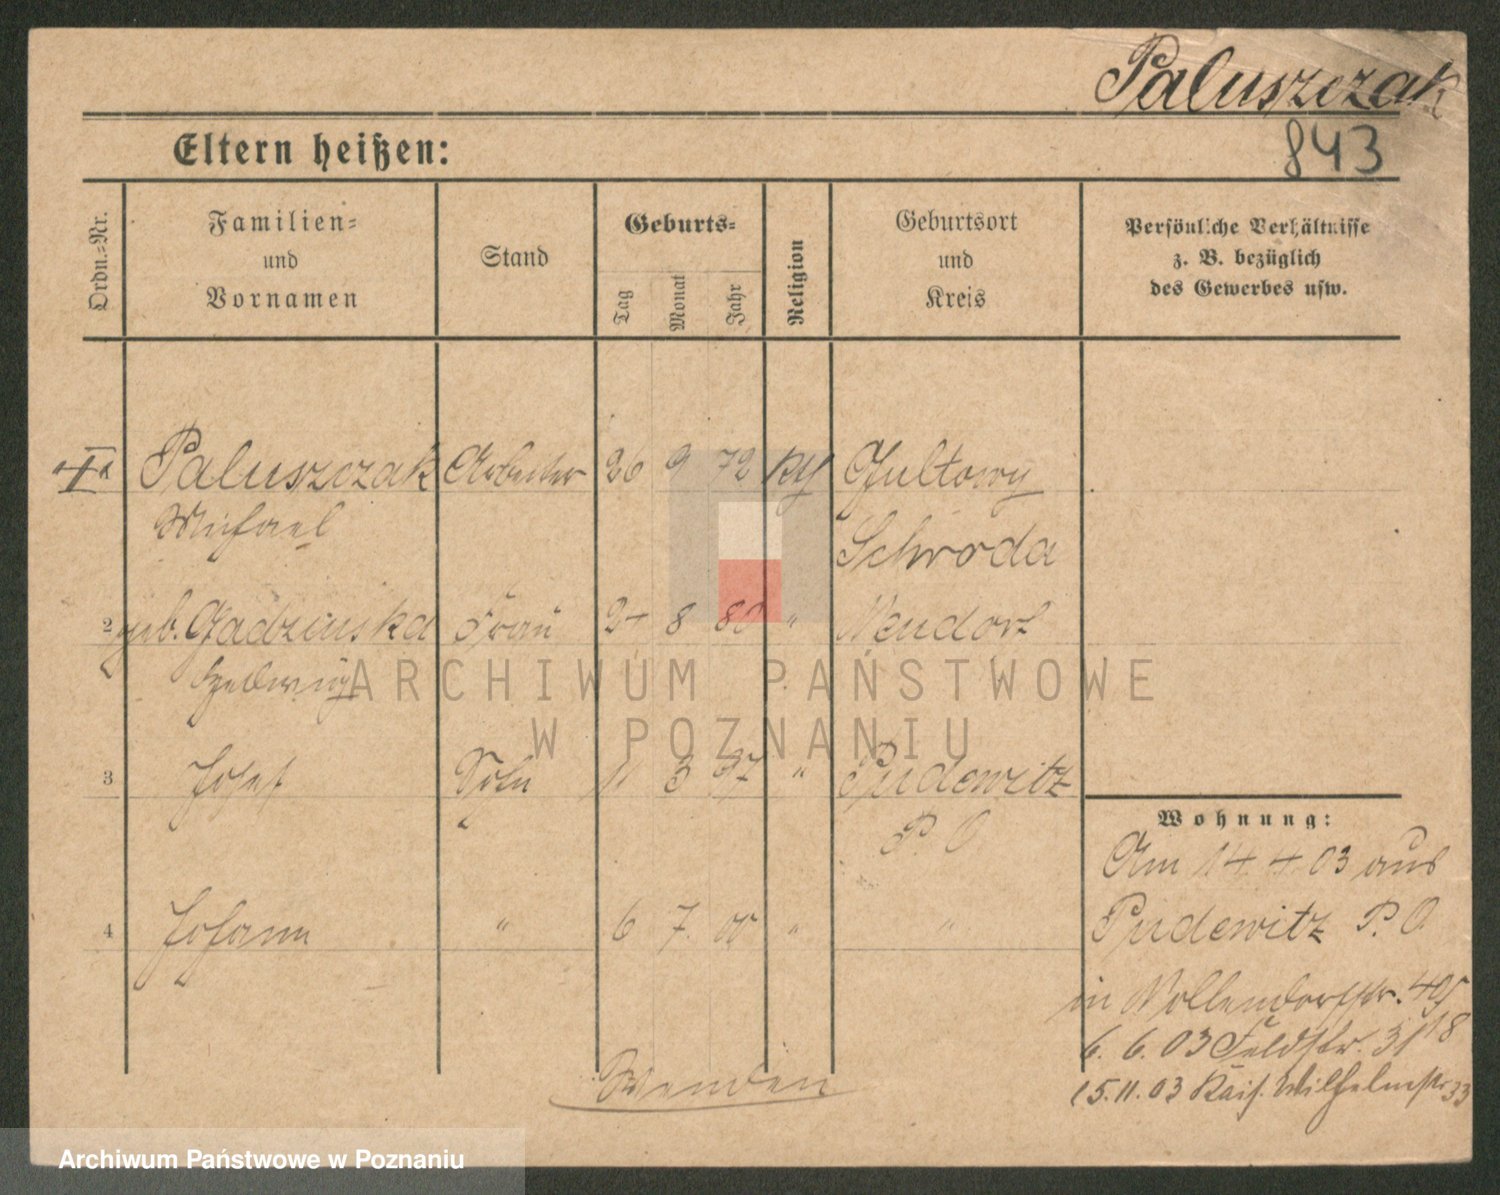 Paluszczak
843
Eltern heißen:
Ordn.-Nr.
Familien-
und
Vornamen
Stand
Geburts-
Tag
Monat
Jahr
Religion
Geburtsort
und
Kreis
Persönliche Verhältnisse
z. B. bezüglich
des Gewerbes usw.
Paluszczak Arbeiter 26 9 72 Kth Gultowy
Michael Schroda
2 geb. Gadzinska Frau 8 80 " Neudorf
Hedwig
3 Josef Sohn 11 3 97 " Pudewitz
P. O
4 Johann " 6 7. 00 " "
Wohnung:
Am 14 4 03 aus
Pudewitz P. O
in 
6. 6. 03 Feldstr. 31
15. 11. 03 Kais. Wilhelmstr 33
Wenden
ARCHIWUM PAŃSTWOWE
W POZNANIU
Archiwum Państwowe w Poznaniu